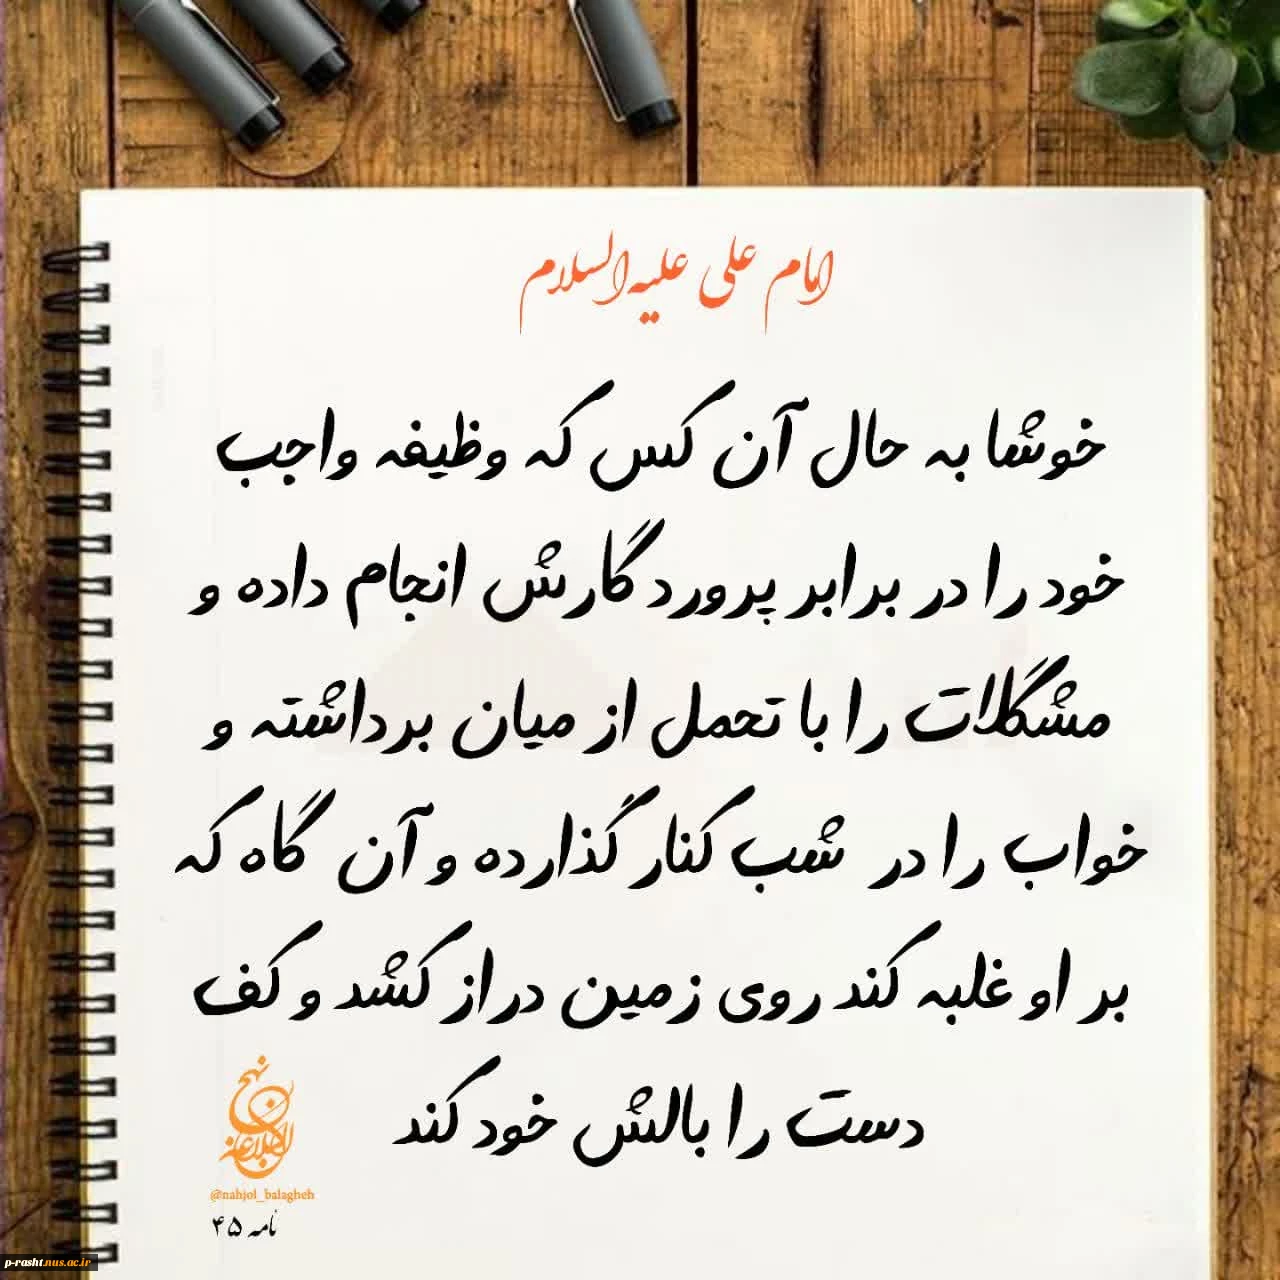 امام علی علیه‌السلام
خوشا به حال آن کس که وظیفه واجب
خود را در برابر پروردگارش انجام داده و
مشگلات را با تحمل از میان برداشته و
خواب را در شب کنار گذارده و آن گاه که
بر او غلبه کند روی زمین دراز کشد و کف
دست را بالش خود کند
نهج البلاغه
@nahjol_balagheh
نامه ۴۵
p-rasht.nus.ac.ir